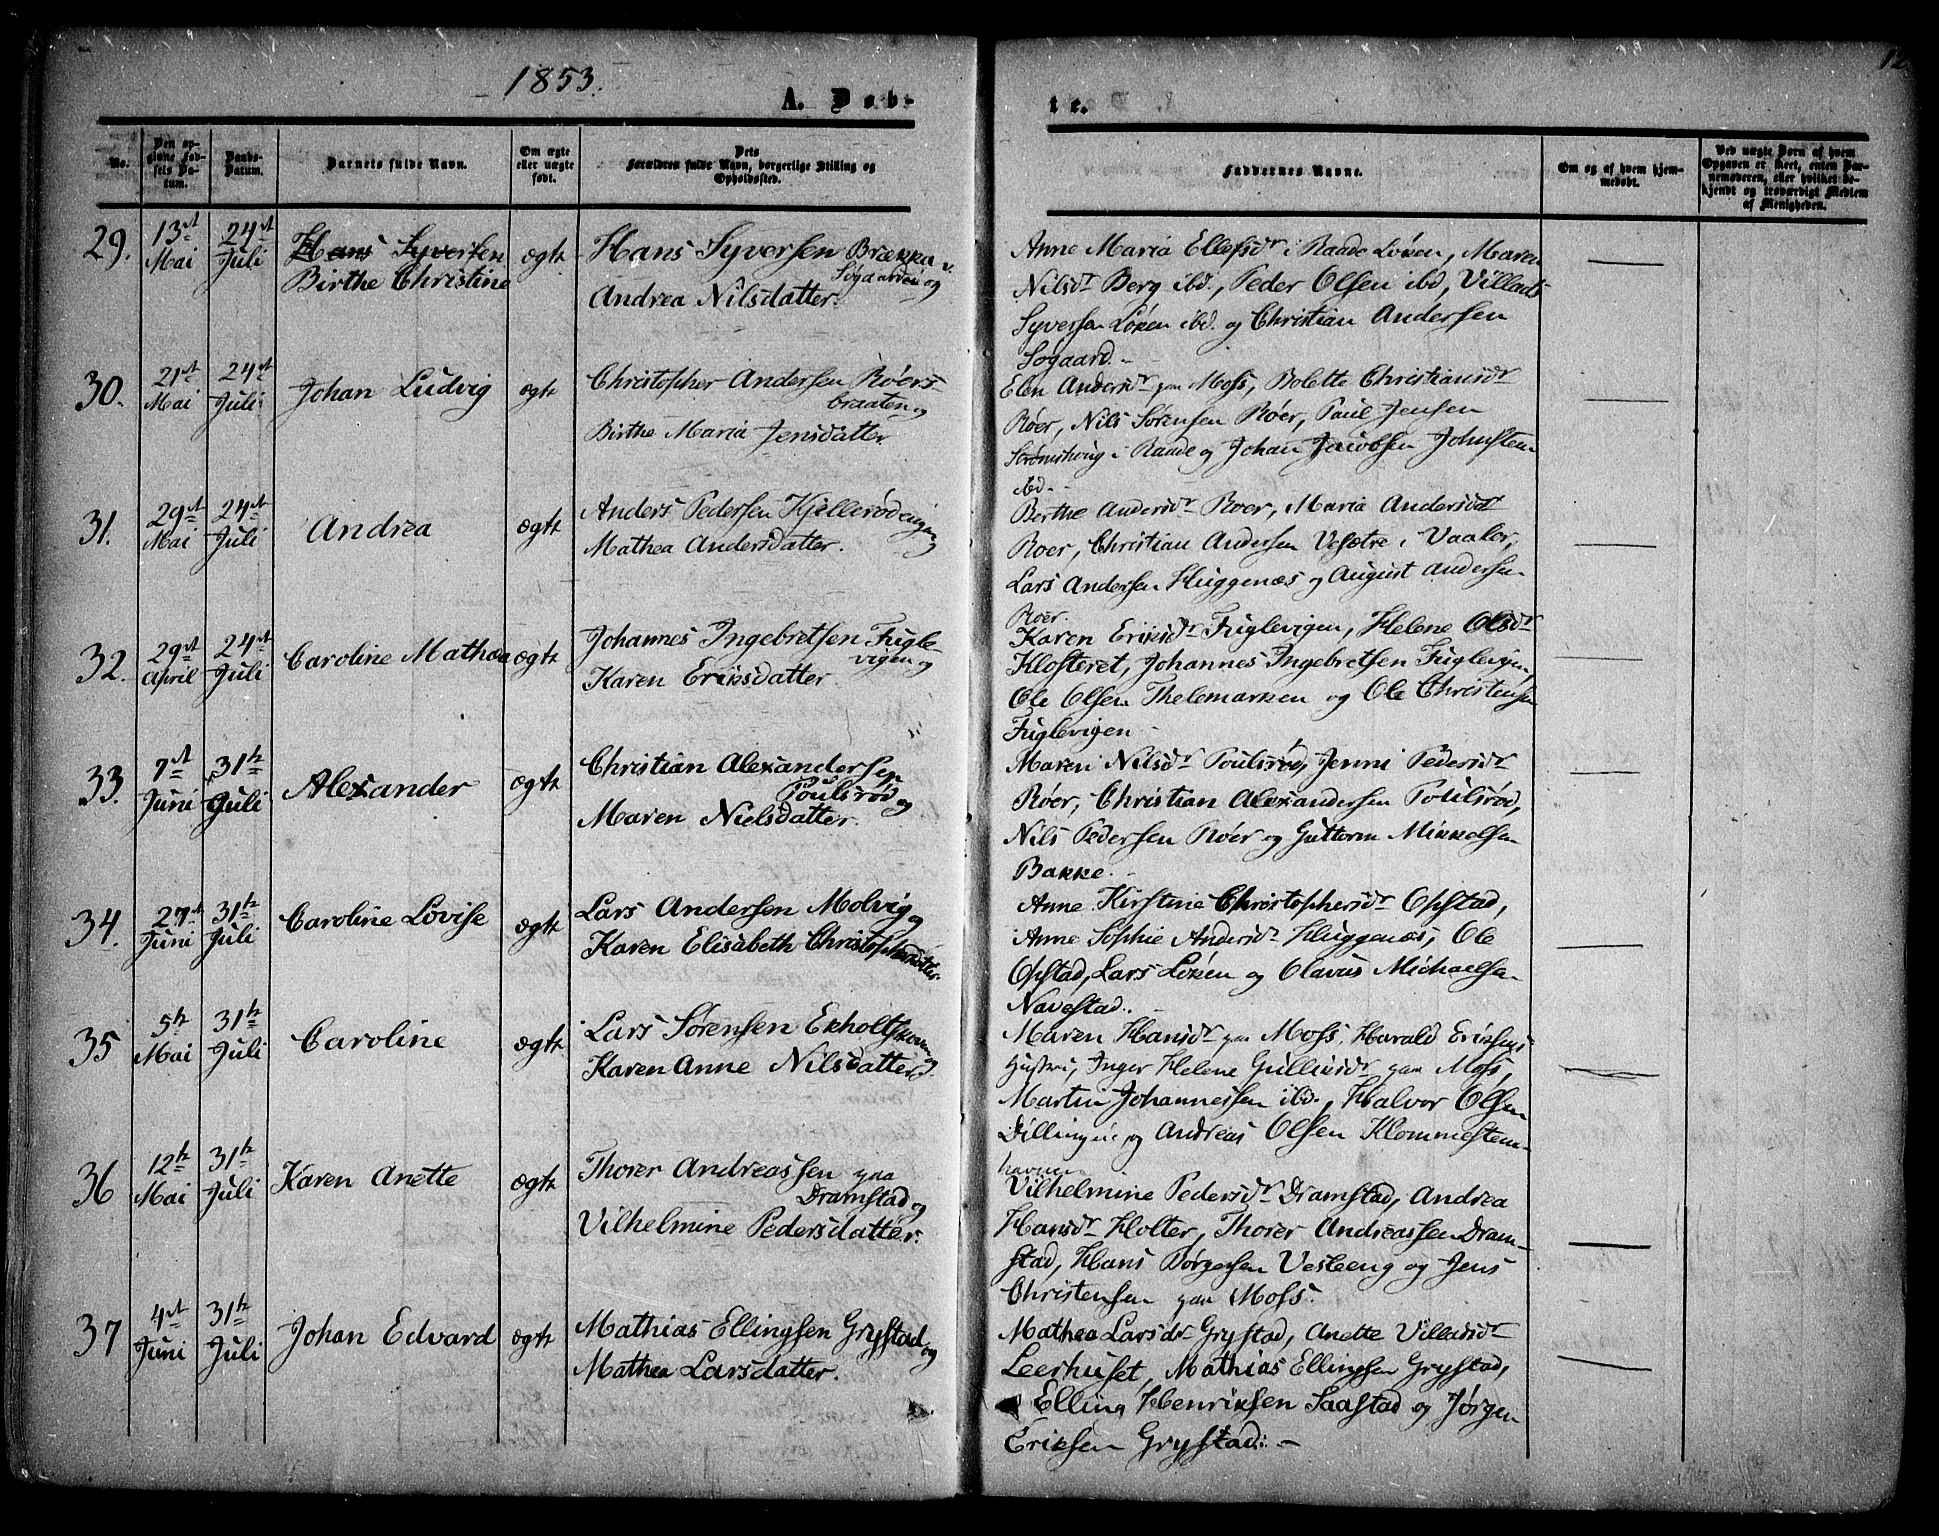 1853.
12
A. Døb-
te.
No.
Den op-
givne Fød-
sels Da-
tum.
Daabs-
Datum.
Barnets fulde Navn.
Om ægte
eller uægte
født.
Dets
Forældres fulde Navn, borgerlige Stilling og
Opholdssted.
Faddernes Navne.
Om og af hvem hjem-
medøbt.
Ved uægte Børn af hvem
Opgaven er skeet, enten Bar-
nemoderen, eller hvilket be-
kjendt og troværdigt Medlem
af Menigheden.
29.
13de
Mai
24de
Juli
Hans Syversen
Birthe Christine
ægte
Hans Syversen Brække v.
Søgaarden og
Andrea Nilsdatter.
Anne Maria Ellefsdr i Raade Løken, Maren
Nilsdr Berg ibd., Peder Olsen ibd, Villads
Syversen Løken ibd. og Christian Andersen
Søgaard.-
30.
21de
Mai
24de
Juli
Johan Ludvig
ægte
Christopher Andersen Röers
braaten og
Birthe Maria Jensdatter
Elen Andersdr paa Moss, Bolette Christiansdr
Röer, Nils Sørensen Röer, Paul Jensen
Strömshoug i Raade og Johan Jacobsen Johnsten
ibd.-
31.
29de
Mai
24de
Juli
Andrea
ægte
Anders Pedersen Kjellerødeigen og
Mathea Andersdatter.
Berthe Andersdr Roer, Maria Andersdr
Roer, Christian Andersen Vesetre i Vaaler,
Lars Andersen Huggenæs og August Andersen
Roer.
32.
29de
April
24de
Juli
Caroline Mathea
ægte
Johannes Ingebretsen Fugle-
vigen og
Karen Eriksdatter
Karen Eriksdr Fuglevigen, Helene Olsdr
Klosteret, Johannes Ingebretsen Fuglevigen,
Ole Olsen Thelemarken og Ole Christensen
Fuglevigen -
33.
7de
Juni
31te
Juli
Alexander
ægte
Christian Alexandersen
Poulsrød og
Maren Nielsdatter.
Maren Nilsdr Poulsrød, Jenni Pedersdr
Röer, Christian Alexandersen Poulsrød,
Nils Pedersen Röer og Guttorm Mikkelsen
Bakke.-
34.
27de
Juni
31te
Juli
Caroline Lovise
ægte
Lars Andersen Molvig og
Karen Elisabeth Christophersdatter.
Anne Kirstine Christophersdr Opstad,
Anne Sophie Andersdr Huggenæs, Ole
Opstad, Lars Løken og Olavus Michaelsen
Navestad.-
35
5te
Mai
31te
Juli
Caroline
ægte
Lars Sørensen Ekholtskoven og
Karen Anne Nilsdatter.
Maren Hansdr paa Moss, Harald Eriksens
Hustru, Inger Helene Gulliksdr paa Moss,
Martin Johannessen ibd., Halvor Olsen
Dillingöen og Andreas Olsen Klommesten-
havnen
36
12te
Mai
31te
Juli
Karen Anette
ægte
Thorer Andreassen paa
Dramstad og
Vilhelmine Pedersdatter.
Vilhelmine Pedersdr Dramstad, Andrea
Hansdr Holter, Thorer Andreassen Dram-
stad, Hans Børgesen Vesteeng og Jens
Christensen paa Moss.
37
4de
Juni
31te
Juli
Johan Edvard
ægte
Mathias Ellingsen Grystad og
Mathea Larsdatter.
Mathea Larsdr Grystad, Anette Villadsdr
Leerhuset, Mathias Ellingsen Grystad,
Elling Henriksen Saastad og Jørgen
Eriksen Grystad.-